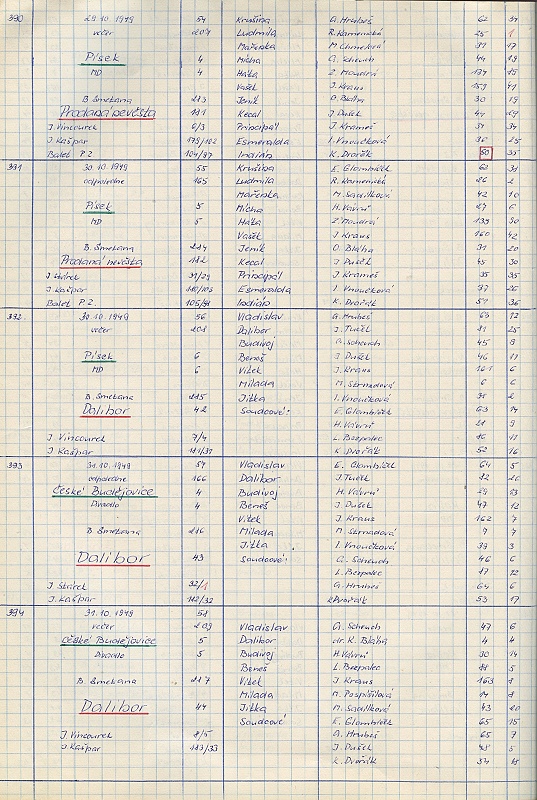 390 29.10.1949 54 Krušina G. Hrubeš 62 31
večer 204 Ludmila R. Kamenická 25 1
Mařenka M. Chmelová 31 17
Písek 4 Mícha G. Scheuch 44 19
MD 4 Háta Z. Moudrá
Vašek J. Kraus 159 41
B. Smetana 213 Jeník O. Bláha 30 19
Prodaná nevěsta 181 Kecal J. Dušek 44 29
J. Vincourek 6/3 Principál J. Krameš 34 34
J. Kašpar 179/102 Esmeralda I. Vnoučková 36 25
Balet P.Z. 104/97 Indián K. Dvořák 50 35
391 30.10.1949 55 Krušina E. Glombíček 62 31
odpoledne 165 Ludmila R. Kamenická 26 2
Mařenka M. Sadílková 42 10
Písek 5 Mícha H. Vávrů 27 6
MD 5 Háta Z. Moudrá 139 30
Vašek J. Kraus 160 42
B. Smetana 214 Jeník O. Bláha 31 20
Prodaná nevěsta 182 Kecal J. Dušek 45 30
J. Stárek 31/29 Principál J. Krameš 35 35
J. Kašpar 180/103 Esmeralda I. Vnoučková 37 26
Balet P.Z. 105/98 Indián K. Dvořák 51 36
392 30.10.1949 56 Vladislav G. Hrubeš 63 12
večer 208 Dalibor J. Tuček 81 25
Budivoj G. Scheuch 45 8
Písek 6 Beneš J. Dušek 46 11
MD 6 Vítek J. Kraus 161 6
Milada M. Strnadová 6 6
B. Smetana 215 Jitka I. Vnoučková 38 2
Dalibor 42 Soudcové: E. Glombíček 63 14
H. Vávrů 21 9
J. Vincourek 7/4 L. Bezpalec 16 11
J. Kašpar 181/31 K. Dvořák 52 16
393 31.10.1949 57 Vladislav E. Glombíček 64 5
odpoledne 166 Dalibor J. Tuček 82 26
České Budějovice 4 Budivoj H. Vávrů 29 13
Divadlo 4 Beneš J. Dušek 47 12
Vítek J. Kraus 162 7
B. Smetana 216 Milada M. Strnadová 7 7
Jitka I. Vnoučková 39 3
Dalibor 43 Soudcové: G. Scheuch 46 6
L. Bezpalec 17 12
J. Stárek 32/1 G. Hrubeš 64 6
J. Kašpar 182/32 K. Dvořák 53 17
394 31.10.1949 58
večer 209 Vladislav G. Scheuch 47 6
České Budějovice 5 Dalibor dr. K. Bláha 4 4
Divadlo 5 Budivoj H. Vávrů 30 14
Beneš L. Bezpalec 18 5
B. Smetana 217 Vítek J. Kraus 163 8
Milada M. Pospíšilová 14 8
Dalibor 44 Jitka M. Sadílková 43 20
Soudcové E. Glombíček 65 15
J. Vincourek 8/5 G. Hrubeš 65 7
J. Kašpar 183/33 J. Dušek 48 5
K. Dvořák 54 18